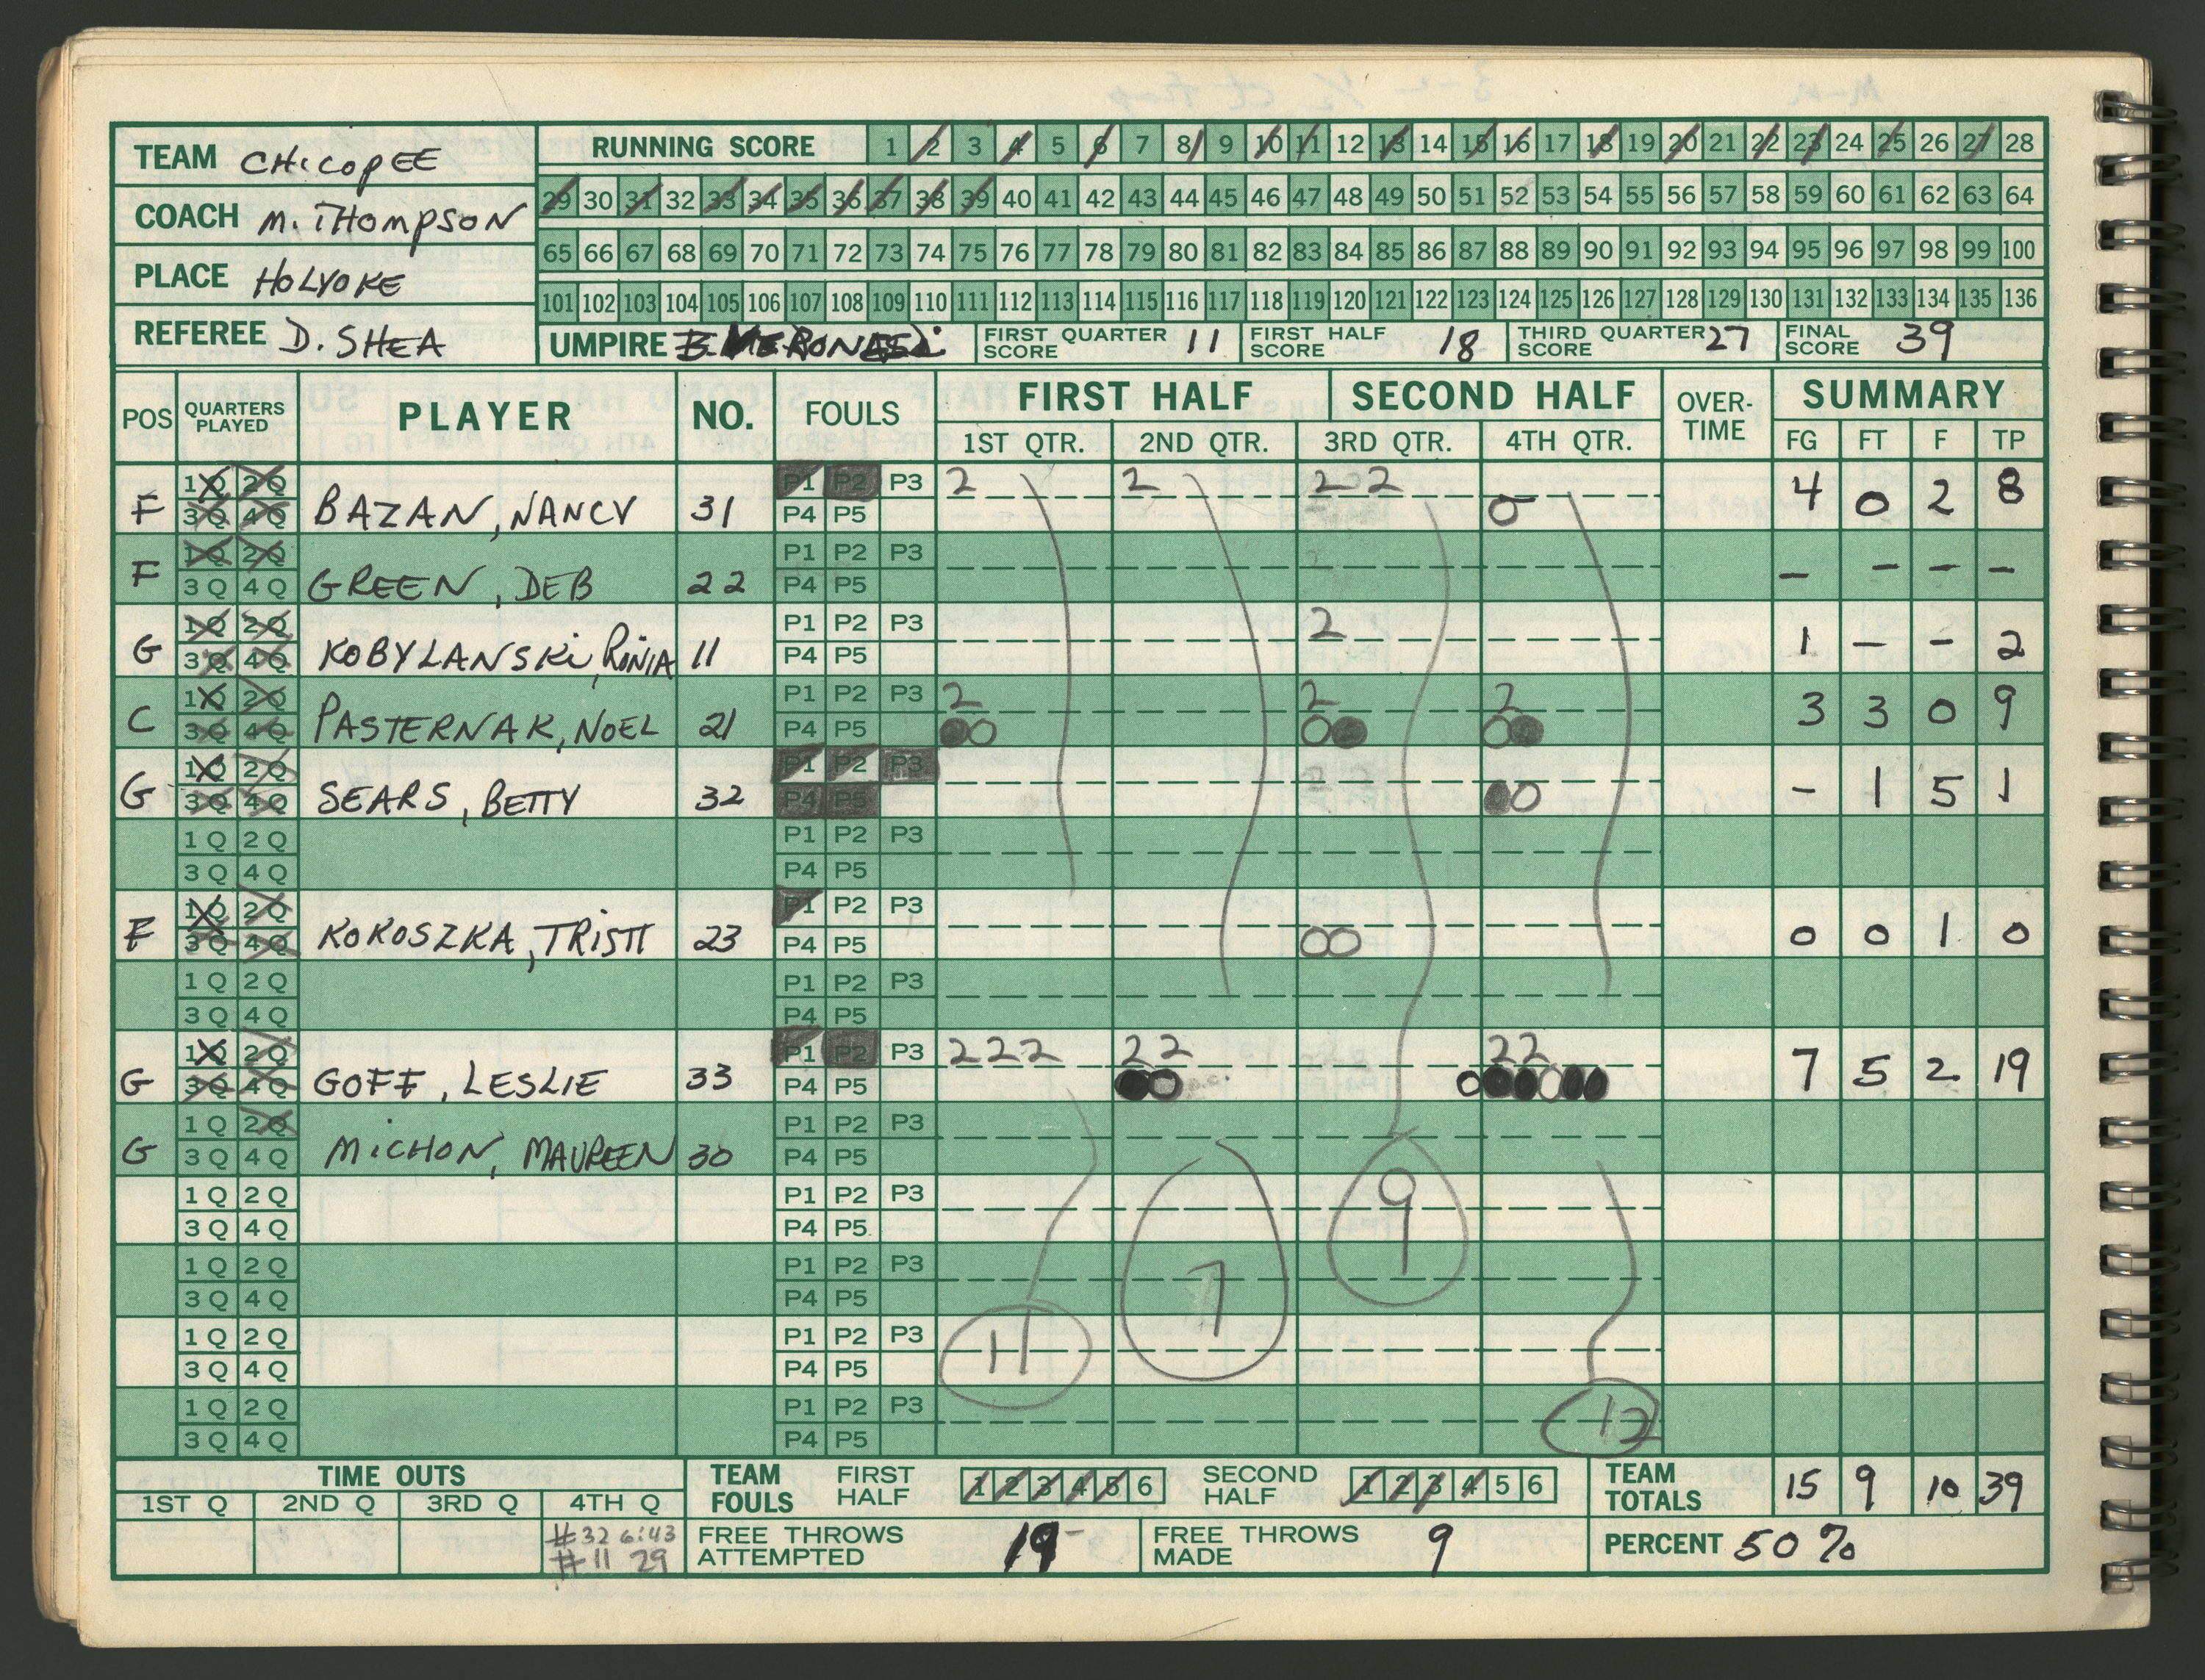 TEAM CHICOPEE
COACH M. THOMPSON
PLACE HOLYOKE
REFEREE D. SHEA
RUNNING SCORE 1 2 3 4 5 6 7 8 9 10 11 12 13 14 15 16 17 18 19 20 21 22 23 24 25 26 27 28
29 30 31 32 33 34 35 36 37 38 39 40 41 42 43 44 45 46 47 48 49 50 51 52 53 54 55 56 57 58 59 60 61 62 63 64
65 66 67 68 69 70 71 72 73 74 75 76 77 78 79 80 81 82 83 84 85 86 87 88 89 90 91 92 93 94 95 96 97 98 99 100
101 102 103 104 105 106 107 108 109 110 111 112 113 114 115 116 117 118 119 120 121 122 123 124 125 126 127 128 129 130 131 132 133 134 135 136
UMPIRE FIRST QUARTER SCORE 11 FIRST HALF SCORE 18 THIRD QUARTER SCORE 27 FINAL SCORE 39
POS QUARTERS PLAYED PLAYER NO. FOULS FIRST HALF SECOND HALF OVER-TIME SUMMARY
1ST QTR. 2ND QTR. 3RD QTR. 4TH QTR. FG FT F TP
1Q 2Q P1 P2 P3 2 2 2 2
F 3Q 4Q BAZAN, NANCY 31 P4 P5 0 4 0 2 8
1Q 2Q P1 P2 P3
F 3Q 4Q GREEN, DEB 22 P4 P5 - - - -
1Q 2Q P1 P2 P3 2
G 3Q 4Q KOBYLANSKI, RONIA 11 P4 P5 1 - - 2
1Q 2Q P1 P2 P3 2 2 2
C 3Q 4Q PASTERNAK, NOEL 21 P4 P5 00 00 00 3 3 0 9
1Q 2Q P1 P2 P3
G 3Q 4Q SEARS, BETTY 32 P4 P5 00 - 1 5 1
1Q 2Q P1 P2 P3
3Q 4Q P4 P5
1Q 2Q P1 P2 P3
F 3Q 4Q KOKOSZKA, TRISTI 23 P4 P5 00 0 0 1 0
1Q 2Q P1 P2 P3
3Q 4Q P4 P5
1Q 2Q P1 P2 P3 2 2 2 2 2 2 2
G 3Q 4Q GOFF, LESLIE 33 P4 P5 00 000000 7 5 2 19
1Q 2Q P1 P2 P3
G 3Q 4Q MICHON, MAUREEN 30 P4 P5
1Q 2Q P1 P2 P3 9
3Q 4Q P4 P5
1Q 2Q P1 P2 P3
3Q 4Q P4 P5 7
1Q 2Q P1 P2 P3
3Q 4Q P4 P5 11
1Q 2Q P1 P2 P3
3Q 4Q P4 P5 12
TIME OUTS
1ST Q 2ND Q 3RD Q 4TH Q
#32 6:43
#11 29
TEAM FOULS FIRST HALF 1 2 3 4 5 6 SECOND HALF 1 2 3 4 5 6 TEAM TOTALS 15 9 10 39
FREE THROWS ATTEMPTED FREE THROWS MADE 9 PERCENT 50%